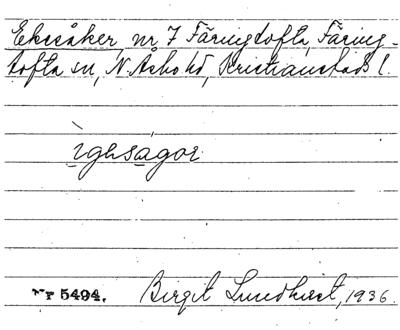 Ekesåker, nr 7 Färingtofta, Färing-
tofta sn, N. Åsbo hd, Kristianstads l.
ìghságor
Nr 5494. Birgit Lundkvist, 1936.